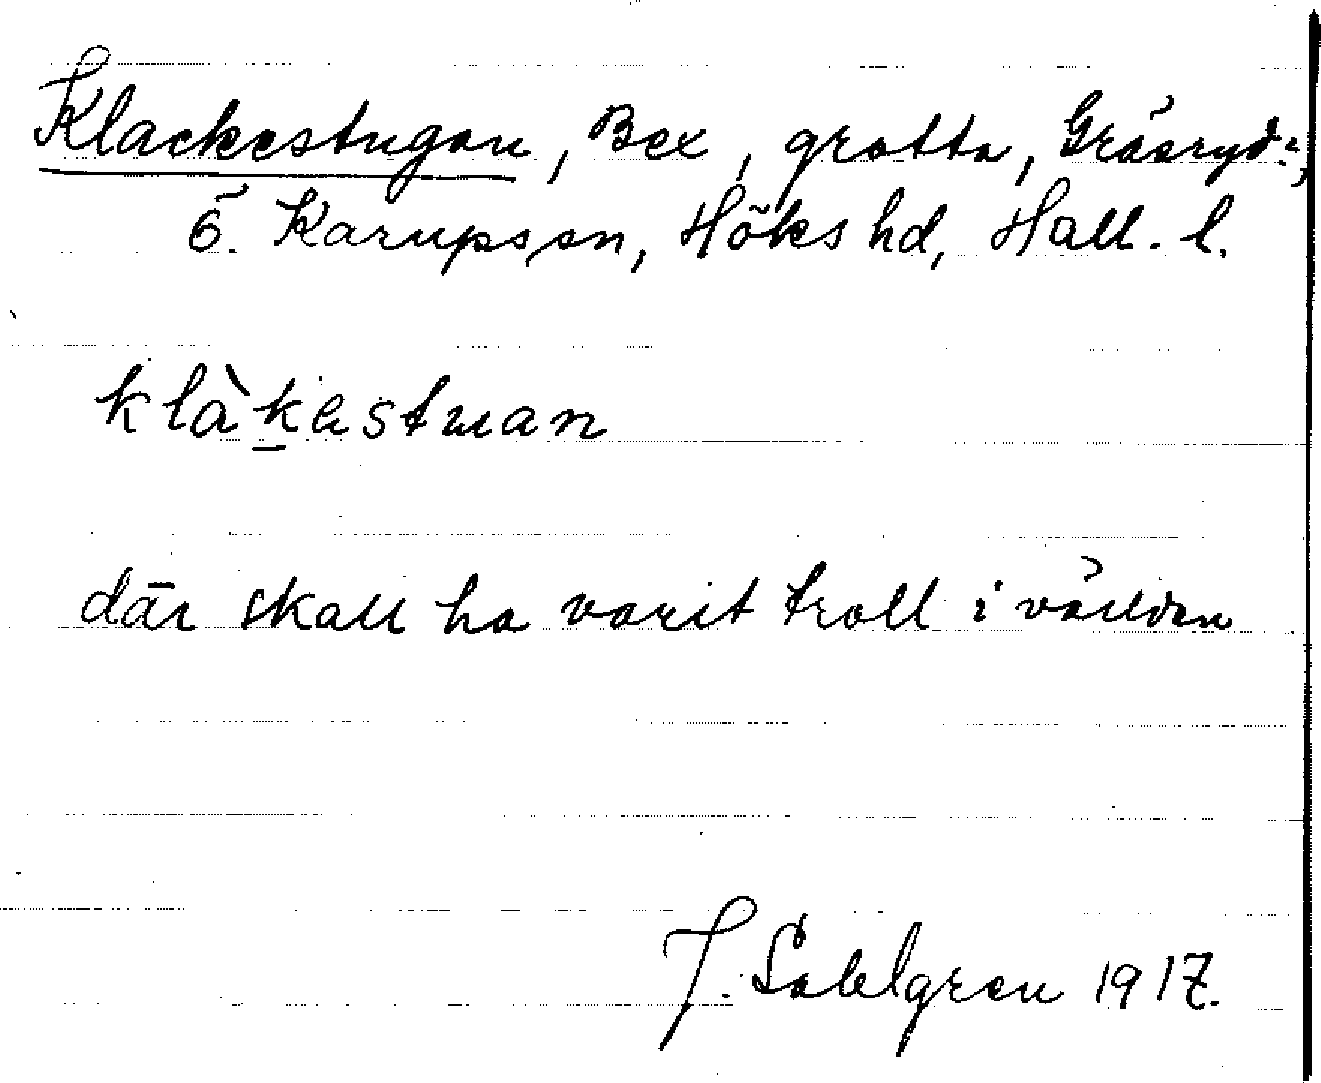 Klackestugan, Bex, grotta, Gräsryd:,
Ö. Karups sn, Höks hd, Hall. l.
klàkestuan
där skall ha varit troll i världen
J. Sahlgren 1917.